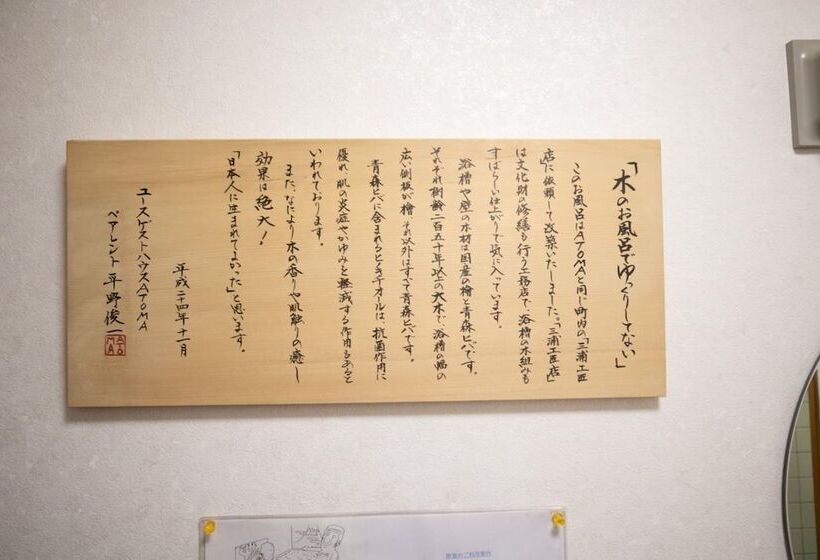 「木のお風呂でゆっくりしてない」
このお風呂はATOMAと同じ町内の「三浦工匠
店」に依頼して改築いたしました。「三浦工匠店」
は文化財の修繕も行う工務店で、浴槽の木組みも
すばらしい仕上がりで気に入っています。
浴槽や壁の木材は国産の檜と青森ヒバです。
それぞれ樹齢二百五十年以上の大木で、浴槽の幅の
広い側板が檜、それ以外はすべて青森ヒバです。
青森ヒバに含まれるヒノキチオールは、抗菌作用に
優れ、肌の炎症やかゆみを軽減する作用もあると
いわれております。
また、なにより木の香りや肌触りの癒し
効果は絶大！
「日本人に生まれてよかった」と思います。
平成二十四年十一月
ユースゲストハウスATOMA
ペアレント 平野俊一
ATOMA